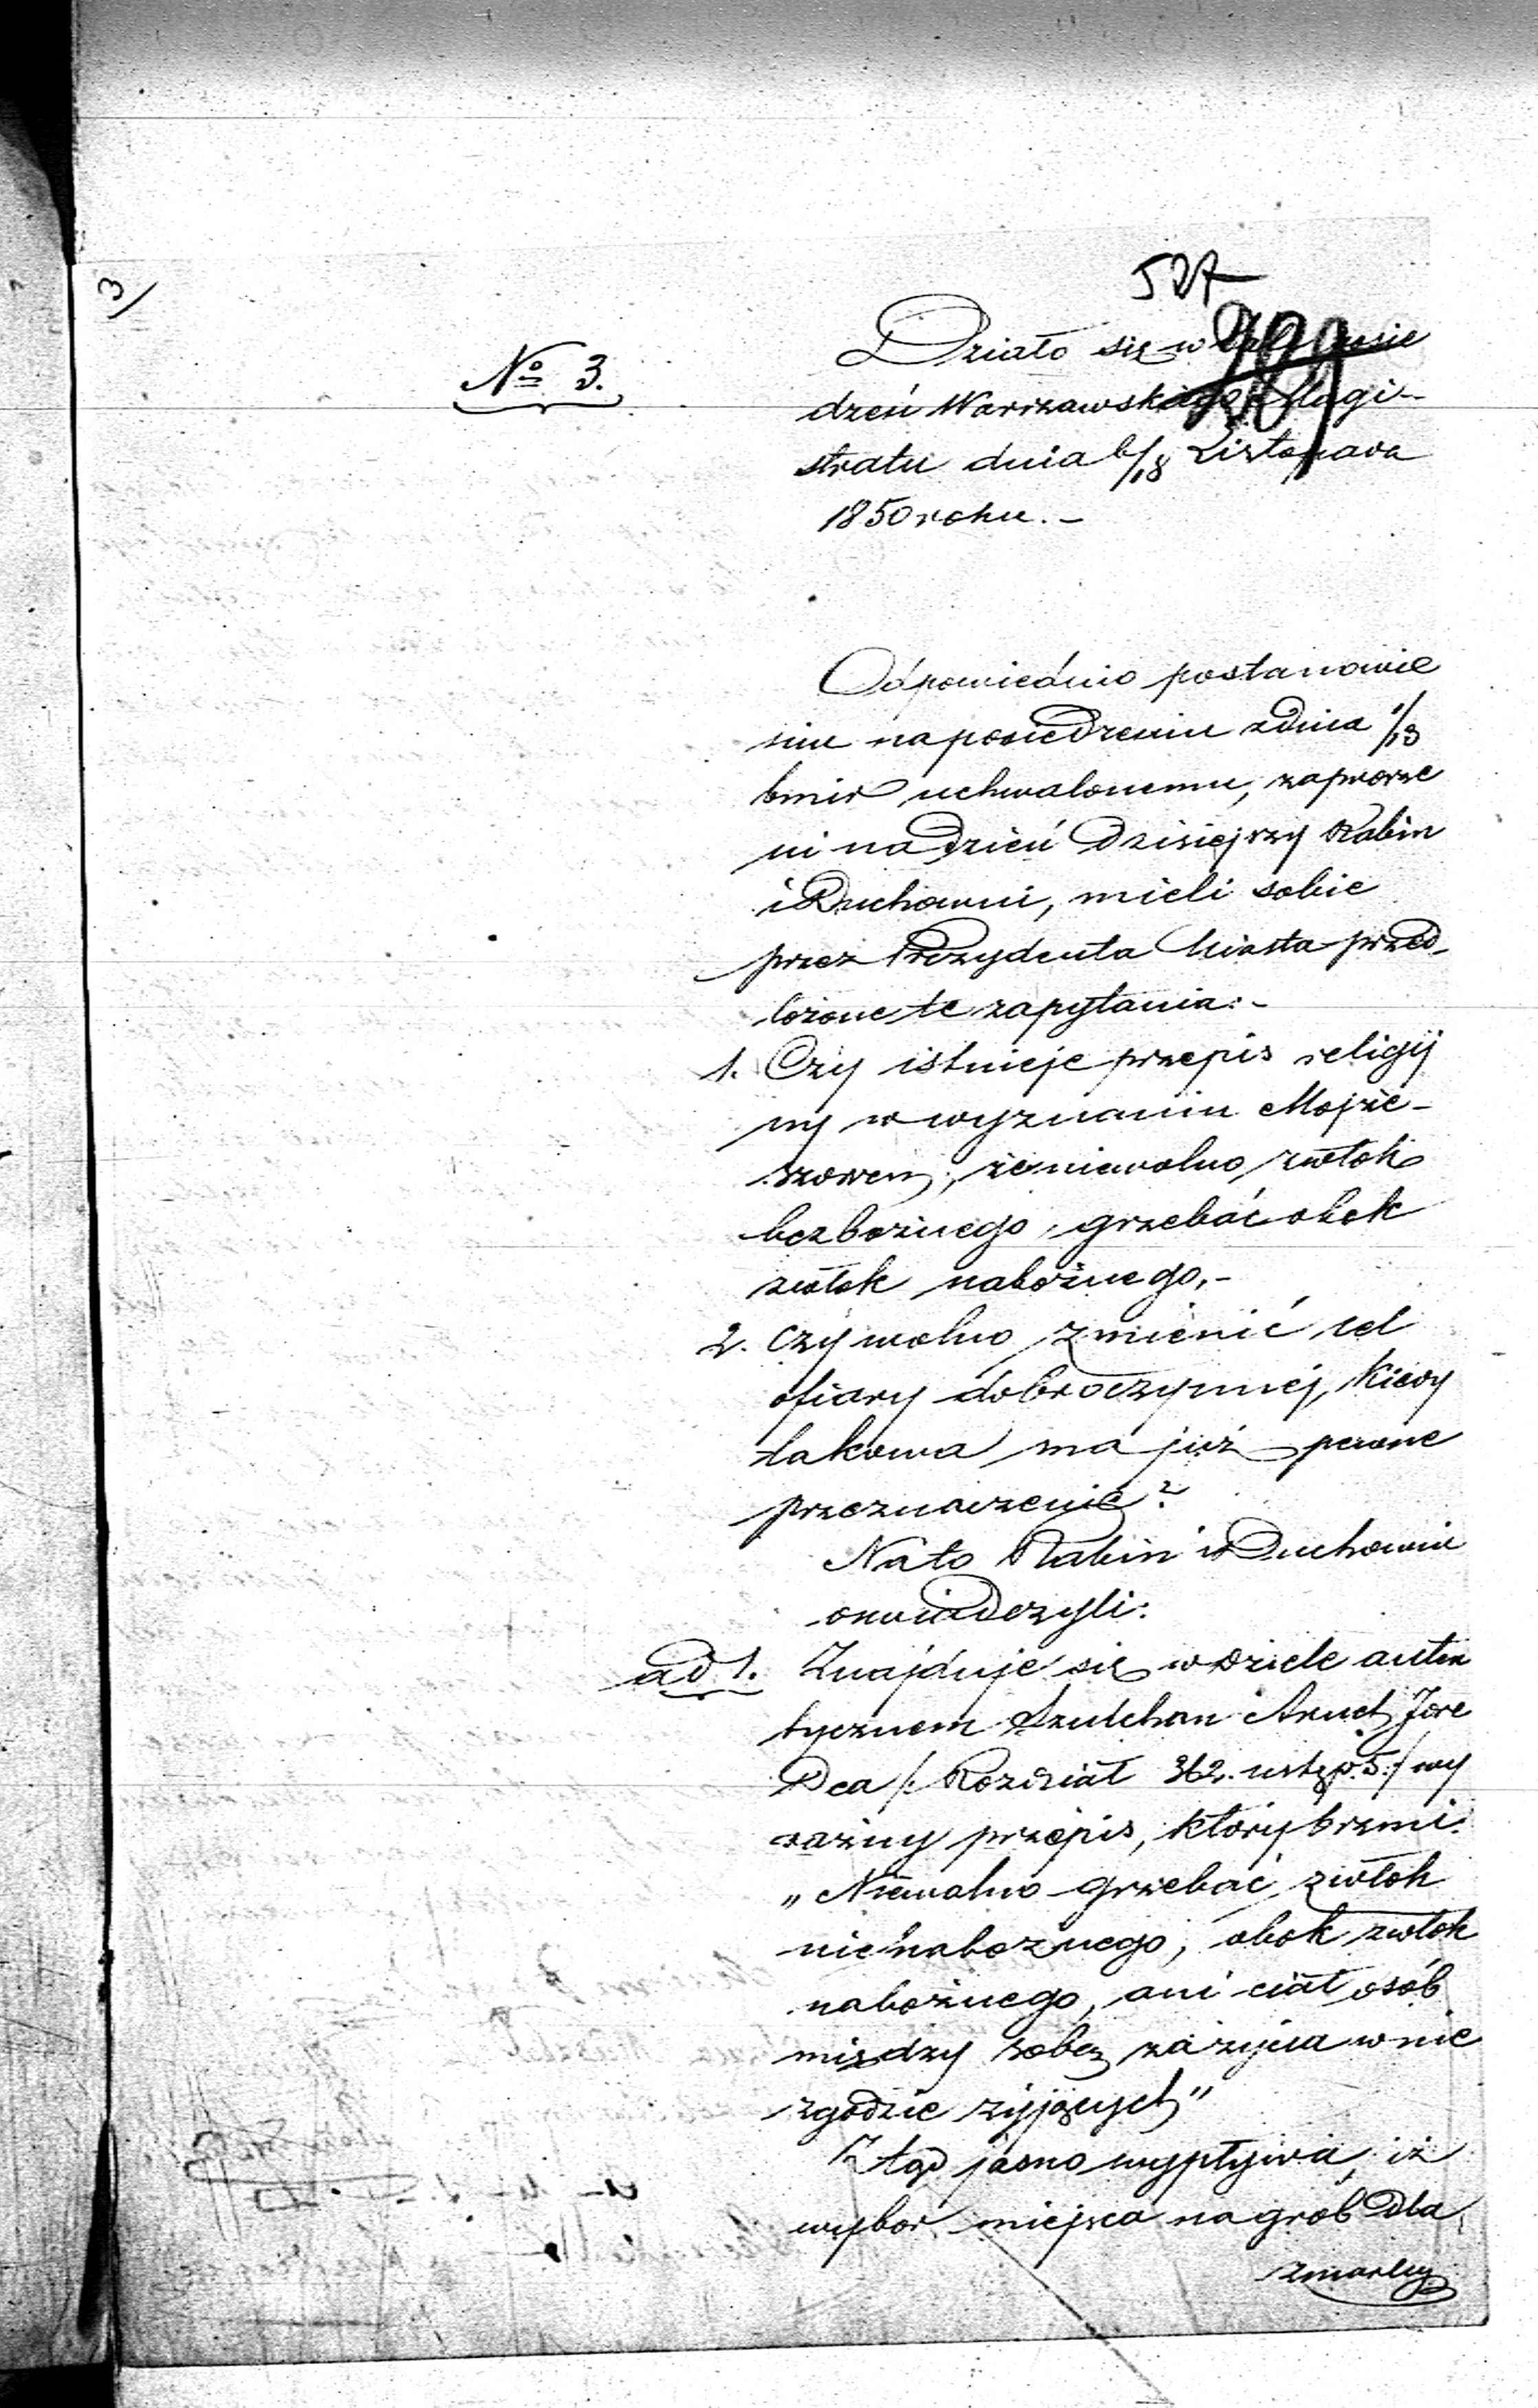 3/
527
289
№ 3.
Działo się w Sali posie
dzeń Warszawskiego Magi-
stratu dnia 6/18 Listopada
1850 roku. -
Odpowiednio postanowie
niu na posiedzeniu z dnia 1/13
bmir uchwalonemu, zaprosze
ni na dzień dzisiejszy Rabin
i Duchowni, mieli sobie
przez Prezydenta Miasta przed-
łożone te zapytania: -
1. Czy istnieje przepis religij
ny w wyznaniu Mojże-
szowem, że niewolno zwłok
bezbożnego, grzebać obok
zwłok nabożnego, -
2. Czy wolno zmienić cel
ofiary dobroczynnej, kiedy
takowa ma już pewne
przeznaczenie?
Na to Rabin i Duchowni
oświadczyli:
ad 1. Znajduje się w dziele auten
tycznem Szulchan Aruch Jore
Dea /: Rozdział 362. ustęp. 5. :/ wy
raźny przepis, który brzmi:
„Niewolno grzebać zwłok
nienabożnego, obok zwłok
nabożnego, ani ciał osób
między sobą za życia w nie
zgodzie żyjących"
Ztąd jasno wypływa, iż
wybór miejsca na grób dla
zmarłey